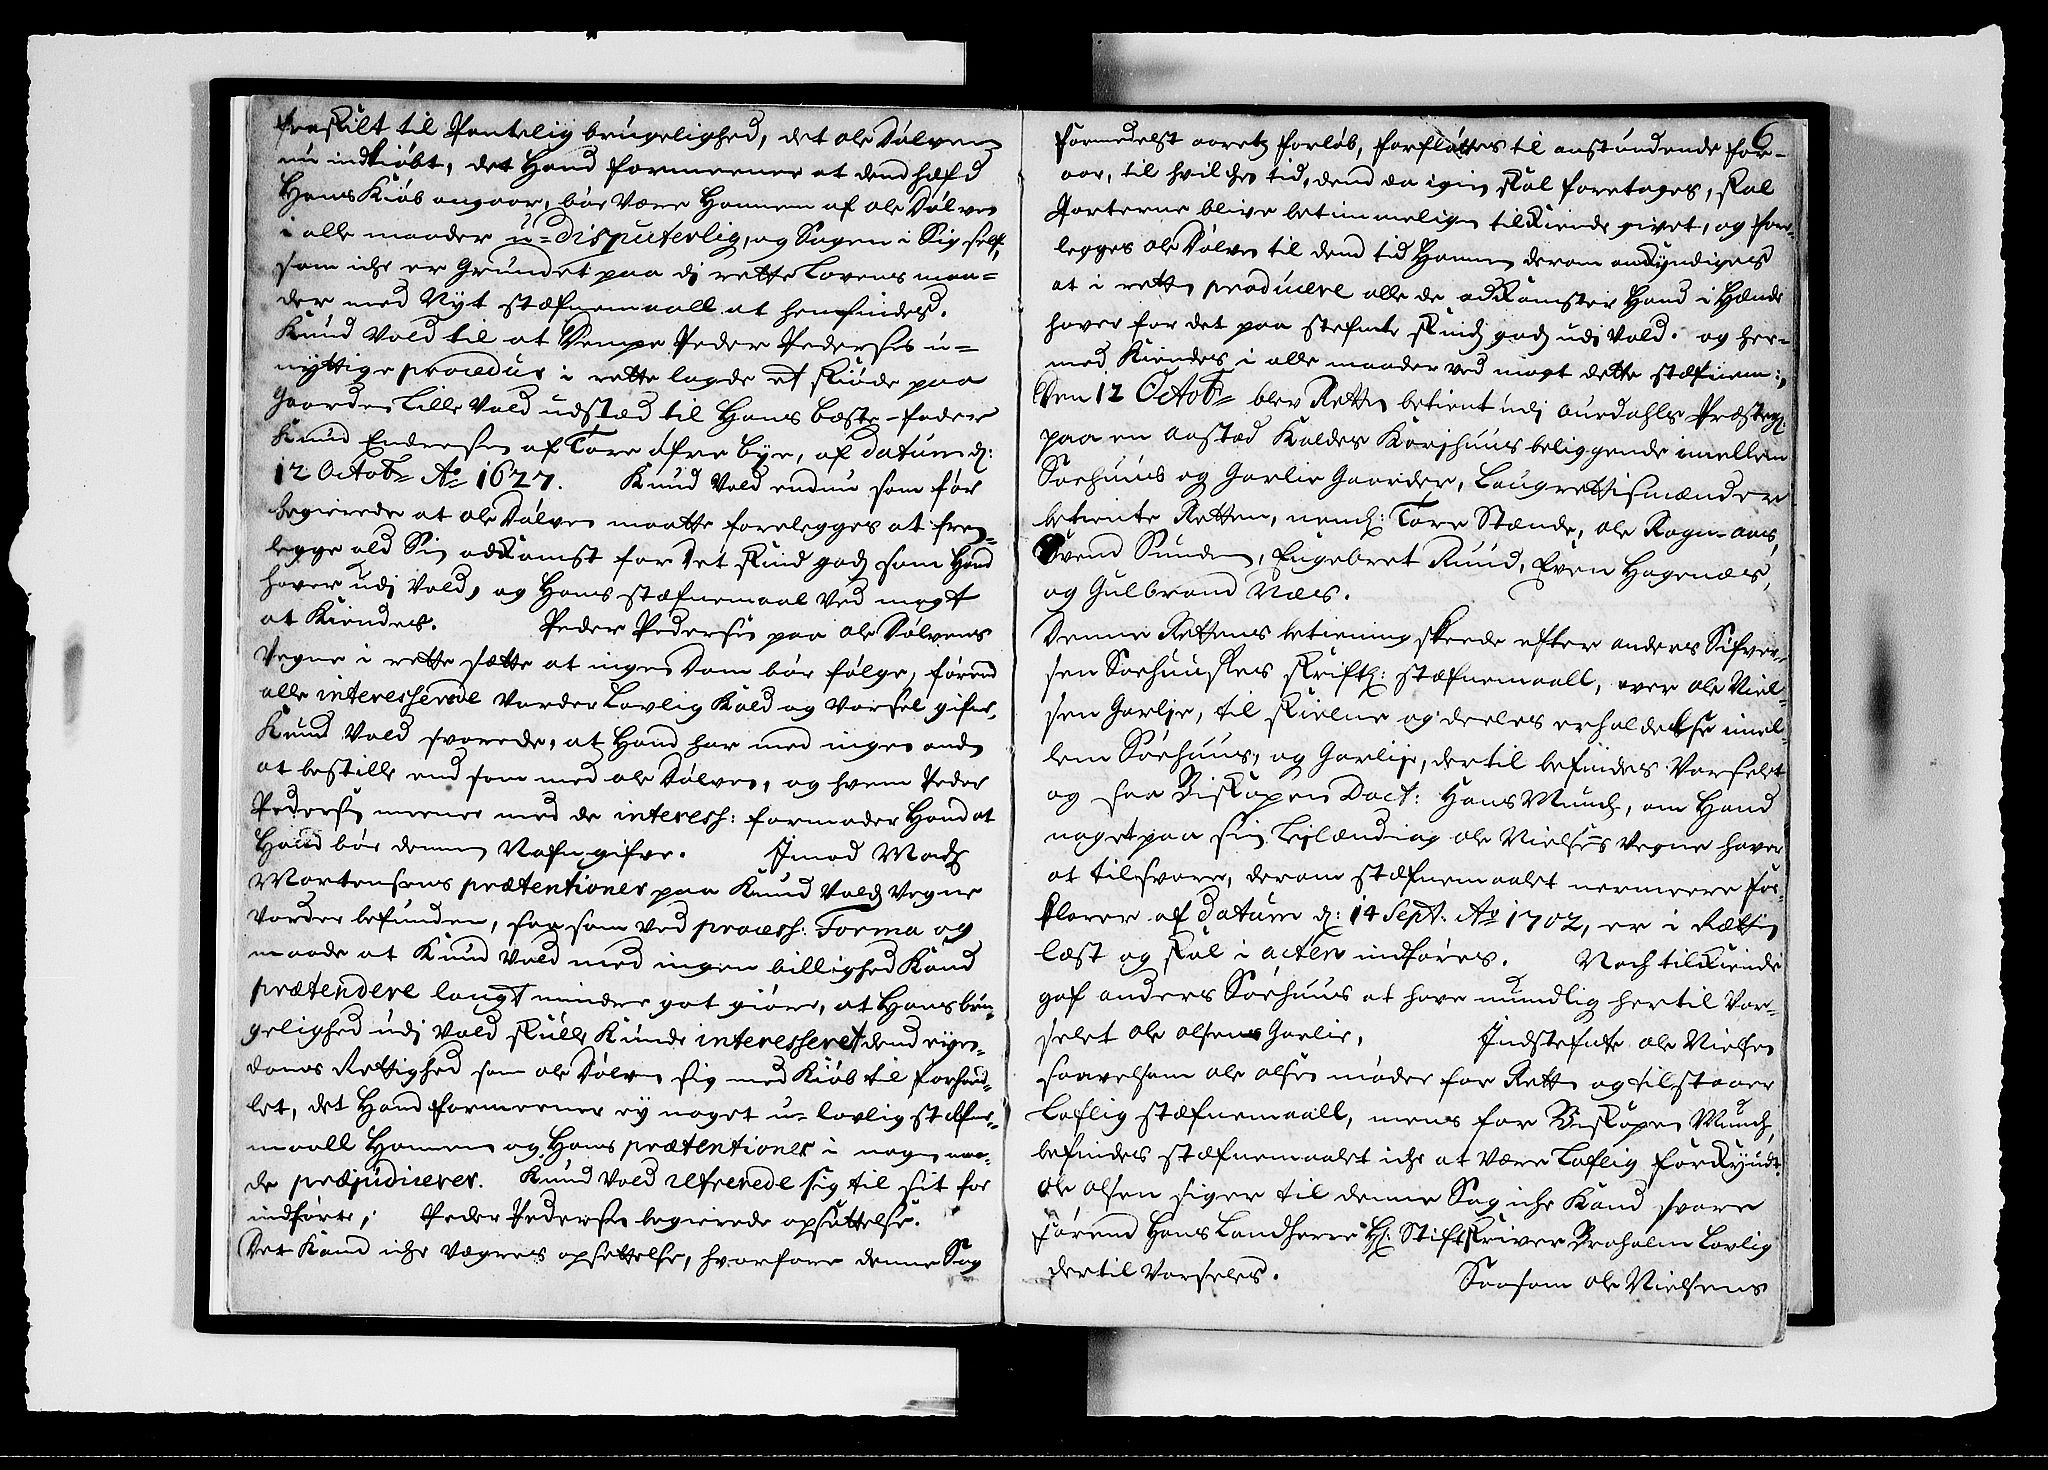 frastilt til Pantelig brugelighed, det ole Dølven
nu indkiøbt, det Hand formeener at dend hæfd
Hans Kiøb angaar, bør være Hannem af ole Dølven
i alle maader u-disputerlig, og Sagen i Sig self,
som iche er Grundet paa di rette Lovens maa-
der med Nyt stæfnemaall at henfindes.
Knud Vold til at Dempe Peder Pedersens u-
nyttige procedur i rette lagde et skiøde paa
Gaarden Lille Vold udstæd til Hans Bæste-fader
Knud Endresen af Tore øfre bye, af datum d:
12 Octobr Ao 1627. Knud Vold endnu som før
begierede at ole Dølven maatte forelegges at frem-
legge ald Sin adkomst for det skind godz som Hand
haver udj Vold, og Hans stæfnemaal ved magt
at Kiendes. Peder Pedersen paa ole Dølvens
Vegne i rette sætte at ingen Dom bør følge, førend
alle interesserede vorder Lovlig Kald og Varsel gifven,
Knud Vold svarede, at Hand har med ingen anden
at bestille end som med ole Dølven, og hvem Peder
Pedersen meener med de interess: formoder Hand at
Hand bør dennem Nafn gifve. Imod Madz
Mortensens prætentioner paa Knud Voldz Vegne
vorder befunden, saasom ved process: Forma og
maade at Knud Vold med ingen billighed Kand
prætendere langt mindre got giøre, at Hans bru-
gelighed udj Vold skulle Kunde interesseret dend eyen-
doms Rettighed som ole Dølven sig med Kiøb til forhand-
let, det Hand formeener ey noget u-lovlig stæfne-
maall Hannem og Hans prætentioner i nogen maa-
de præjudicerer. Knud Vold refererede sig til sit for
indførte; Peder Pedersen begierede opsættelse.
Det Kand iche vægres opsettelse, hvorfore denne Sag
6
formedelst aaretz forløb, forfløttes til anstundende for-
aar, til hvilchen tid, dend da igien skal foretages, skal
Parterne blive betimmeligen tilkiende givet, og fore-
legges ole Dølven til dend tid Hannem derom ankyndiges
at i retten producere alle de adkomster Hand i Hænde
haver for det paa stefnte skindz godz udj Vold. og her-
med Kiendes i alle maader ved magt dette stæfnem:,
Den 12 Octobr blev Retten betient udj aurdahls Præsteg:
paa en aastæd Kaldes Korshuus beliggende imellem
Sørhuus og Garlie Gaarder, Laugrettismænder
betiente Retten, neml: Tore Stænde, ole Rogn-aas,
Svend Sunden, Engebret Ruud, Even Hagenæs,
og Gulbrand Næs.
Denne Rettens betiening skeede efter anders Sifver-
sen Sørhuuses skriftl: stæfnemaall, over ole Niel-
sen Garlie, til skielne og deeles erholdelse imel-
lem Sørhuus, og Garlije, dertil befindes Varselet
og saa Biskopen Doct: Hans Munch, om Hand
noget paa sin Leylænding ole Nielsens Vegne haver
at tilsvare, derom stæfnemaalet nermeere for-
klarer af datum d: 14 Sept. Ao 1702, er i Rætten
læst og skal i acten indføres. Noch tilkiende
gaf anders Sørhuus at have mundlig hertil Var-
selet ole olsen Garlie, Indstefnte ole Nielsen
saavelsom ole olsen møder for Retten og tilstaaer
Laflig stæfnemaall, mens for Biskopen Munch,
befindes stæfnemaalet iche at være Laflig forkyndt
ole olsen siger til denne Sag iche Kand svare
førend Hans Landherre Hr: Stiftskriver Broholm Lovlig
dertil Varseles. Saasom ole Nielsens